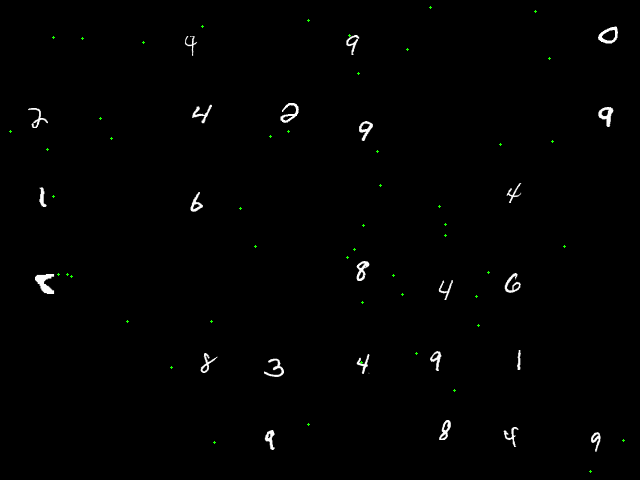 4 9 0
2 4 2 9 9
1 6 4
8 4 6
8 3 4 9 1
9 8 4 9